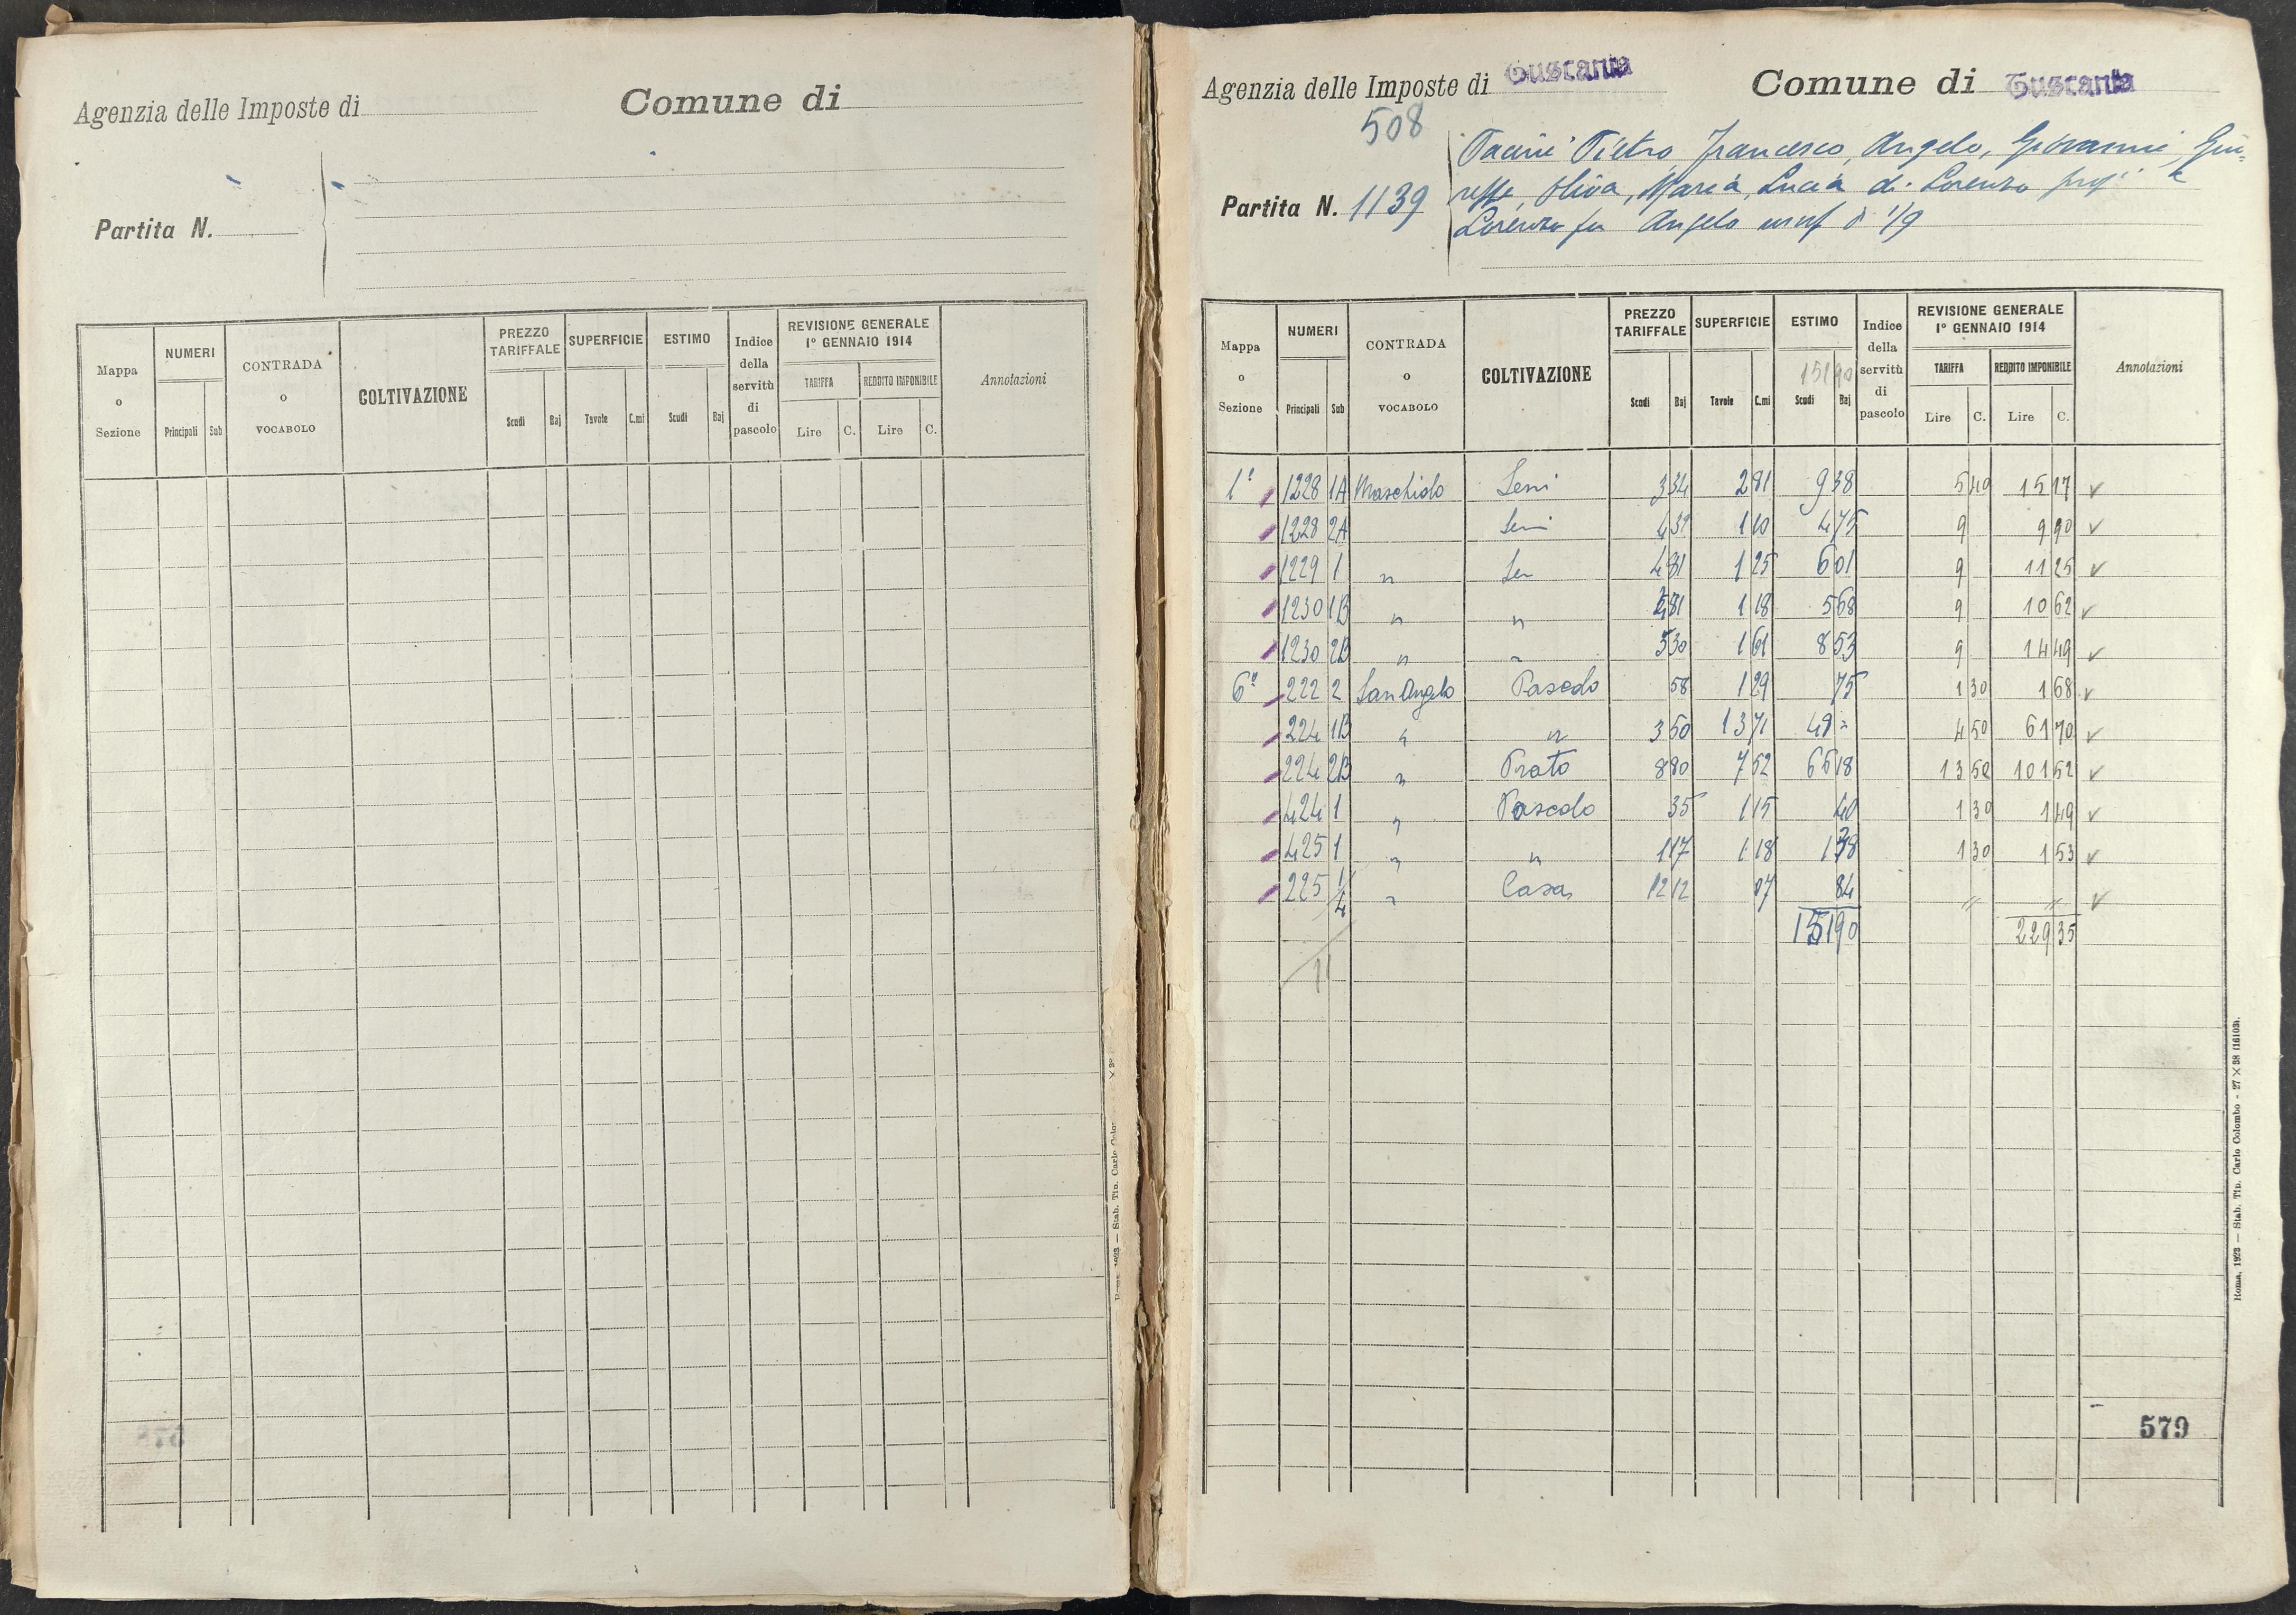 Agenzia delle Imposte di
Comune di
Partita N.
Mappa o Sezione
NUMERI
Principali Sub
CONTRADA o VOCABOLO
COLTIVAZIONE
PREZZO TARIFFALE
Scudi Baj
SUPERFICIE
Tavole C.mi
ESTIMO
Scudi Baj
Indice della servitù di pascolo
REVISIONE GENERALE
1º GENNAIO 1914
TARIFFA
Lire C.
REDDITO IMPONIBILE
Lire C.
Annotazioni
Agenzia delle Imposte di Tuscania
Comune di Tuscania
508
Partita N. 1139
Pietro, Francesco, Angelo, Giovanni, Giu=
seppe, Oliva, Maria, Lucia di Lorenzo prop e
Lorenzo fu Angelo usuf di 1/9
Mappa o Sezione
NUMERI
Principali Sub
CONTRADA o VOCABOLO
COLTIVAZIONE
PREZZO TARIFFALE
Scudi Baj
SUPERFICIE
Tavole C.mi
ESTIMO
15190
Scudi Baj
Indice della servitù di pascolo
REVISIONE GENERALE
1º GENNAIO 1914
TARIFFA
Lire C.
REDDITO IMPONIBILE
Lire C.
Annotazioni
1ª 1228 1A Maschiolo Semi 3 34 2 81 9 38 5 40 15 17 ✓
1228 2A Semi 4 32 1 10 4 75 9 9 90 ✓
1229 1 " Sem 4 81 1 25 6 01 9 11 25 ✓
1230 1B " " 4 81 1 18 5 68 9 10 62 ✓
1230 2B " " 5 30 1 61 8 53 9 14 49 ✓
6ª 222 2 San Angelo Pascolo 58 1 29 75 1 30 1 68 ✓
224 1B " " 3 50 13 71 48 = 4 50 61 70 ✓
224 2B " Prato 8 80 7 52 66 18 13 50 101 52 ✓
424 1 " Pascolo 35 1 15 40 1 30 1 49 ✓
425 1 " " 1 17 1 18 1 38 1 30 1 53 ✓
225 1/4 " Casa 12 12 07 84 " " ✓
151 90 229 35
11
579
Roma, 1923 — Stab. Tip. Carlo Colombo - 27 × 38 (16103).